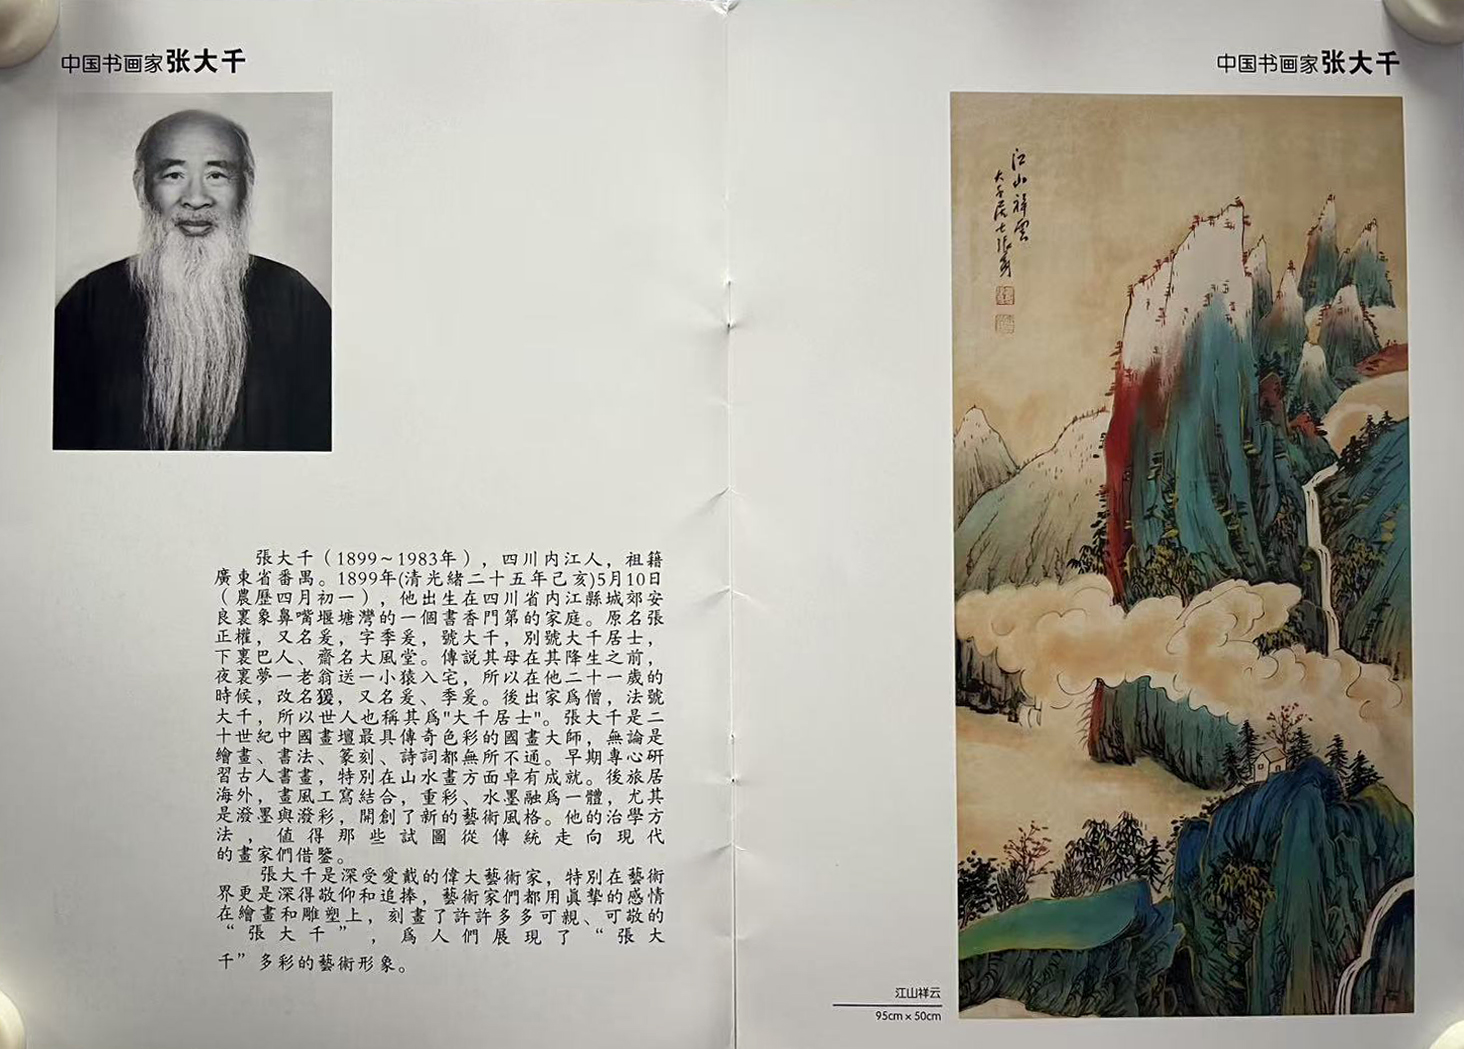 中国书画家张大千
張大千（1899～1983年），四川内江人，祖籍
廣東省番禺。1899年(清光緒二十五年己亥)5月10日
（農歷四月初一），他出生在四川省内江縣城郊安
良裏象鼻嘴堰塘灣的一個書香門第的家庭。原名張
正權，又名爰，字季爰，號大千，别號大千居士，
下裏巴人、齋名大風堂。傳説其母在其降生之前，
夜裏夢一老翁送一小猿入宅，所以在他二十一歲的
時候，改名猨，又名爰、季爰。後出家爲僧，法號
大千，所以世人也稱其爲"大千居士"。張大千是二
十世紀中國畫壇最具傳奇色彩的國畫大師，無論是
繪畫、書法、篆刻、詩詞都無所不通。早期專心研
習古人書畫，特别在山水畫方面卓有成就。後旅居
海外，畫風工寫結合，重彩、水墨融爲一體，尤其
是潑墨與潑彩，開創了新的藝術風格。他的治學方
法，值得那些試圖從傳統走向現代
的畫家們借鑒。
張大千是深受愛戴的偉大藝術家，特别在藝術
界更是深得敬仰和追捧，藝術家們都用真摯的感情
在繪畫和雕塑上，刻畫了許許多多可親、可敬的
“張大千”，爲人們展現了“張大
千”多彩的藝術形象。
中国书画家张大千
江山祥雲
大千居士張爰
江山祥云
95cm×50cm